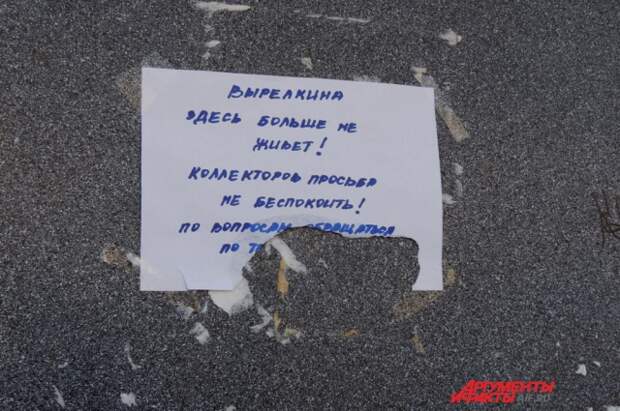 ВЫРЕЛКИНА
ЗДЕСЬ БОЛЬШЕ НЕ
ЖИВЕТ!
КОЛЛЕКТОРОВ ПРОСЬБА
НЕ БЕСПОКОИТЬ!
ПО ВОПРОСАМ ОБРАЩАТЬСЯ
ПО
АРГУМЕНТЫ
И ФАКТЫ AIF.RU